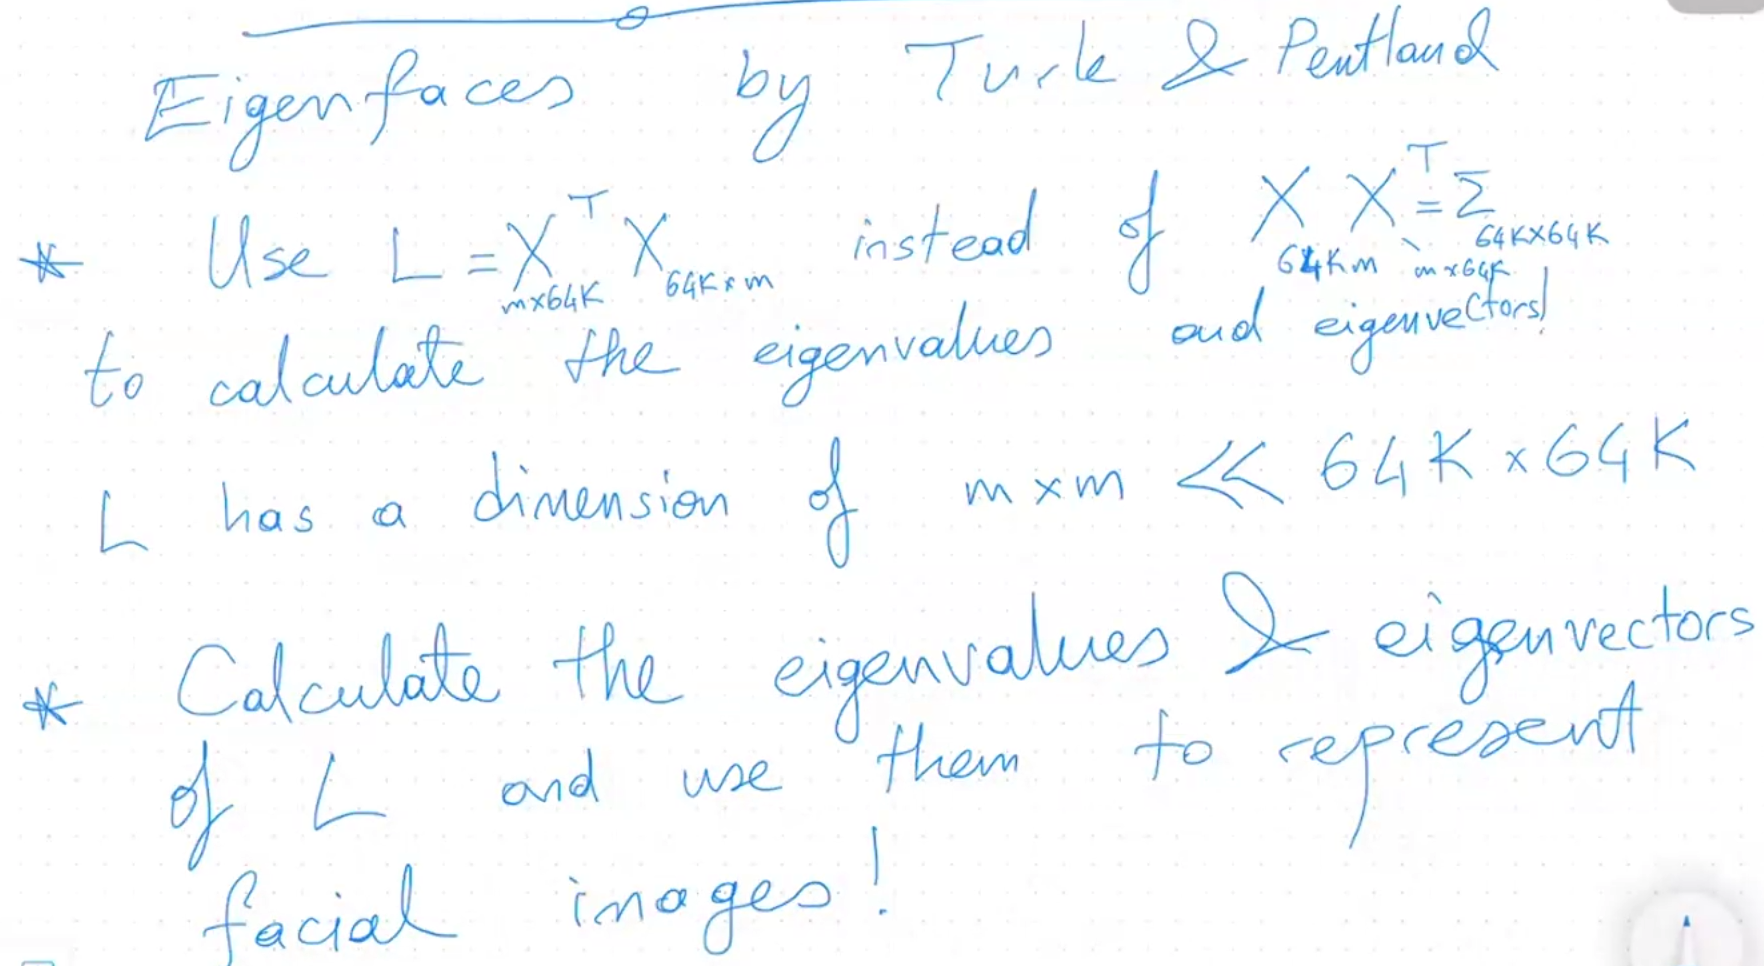 Eigenfaces by Turk & Pentland
* Use L = X^T_{m×64K} X_{64K×m} instead of X_{64Km} X^T_{m×64K} = Σ_{64K×64K}
to calculate the eigenvalues and eigenvectors!
L has a dimension of m×m << 64K×64K
* Calculate the eigenvalues & eigenvectors
of L and use them to represent
facial images!